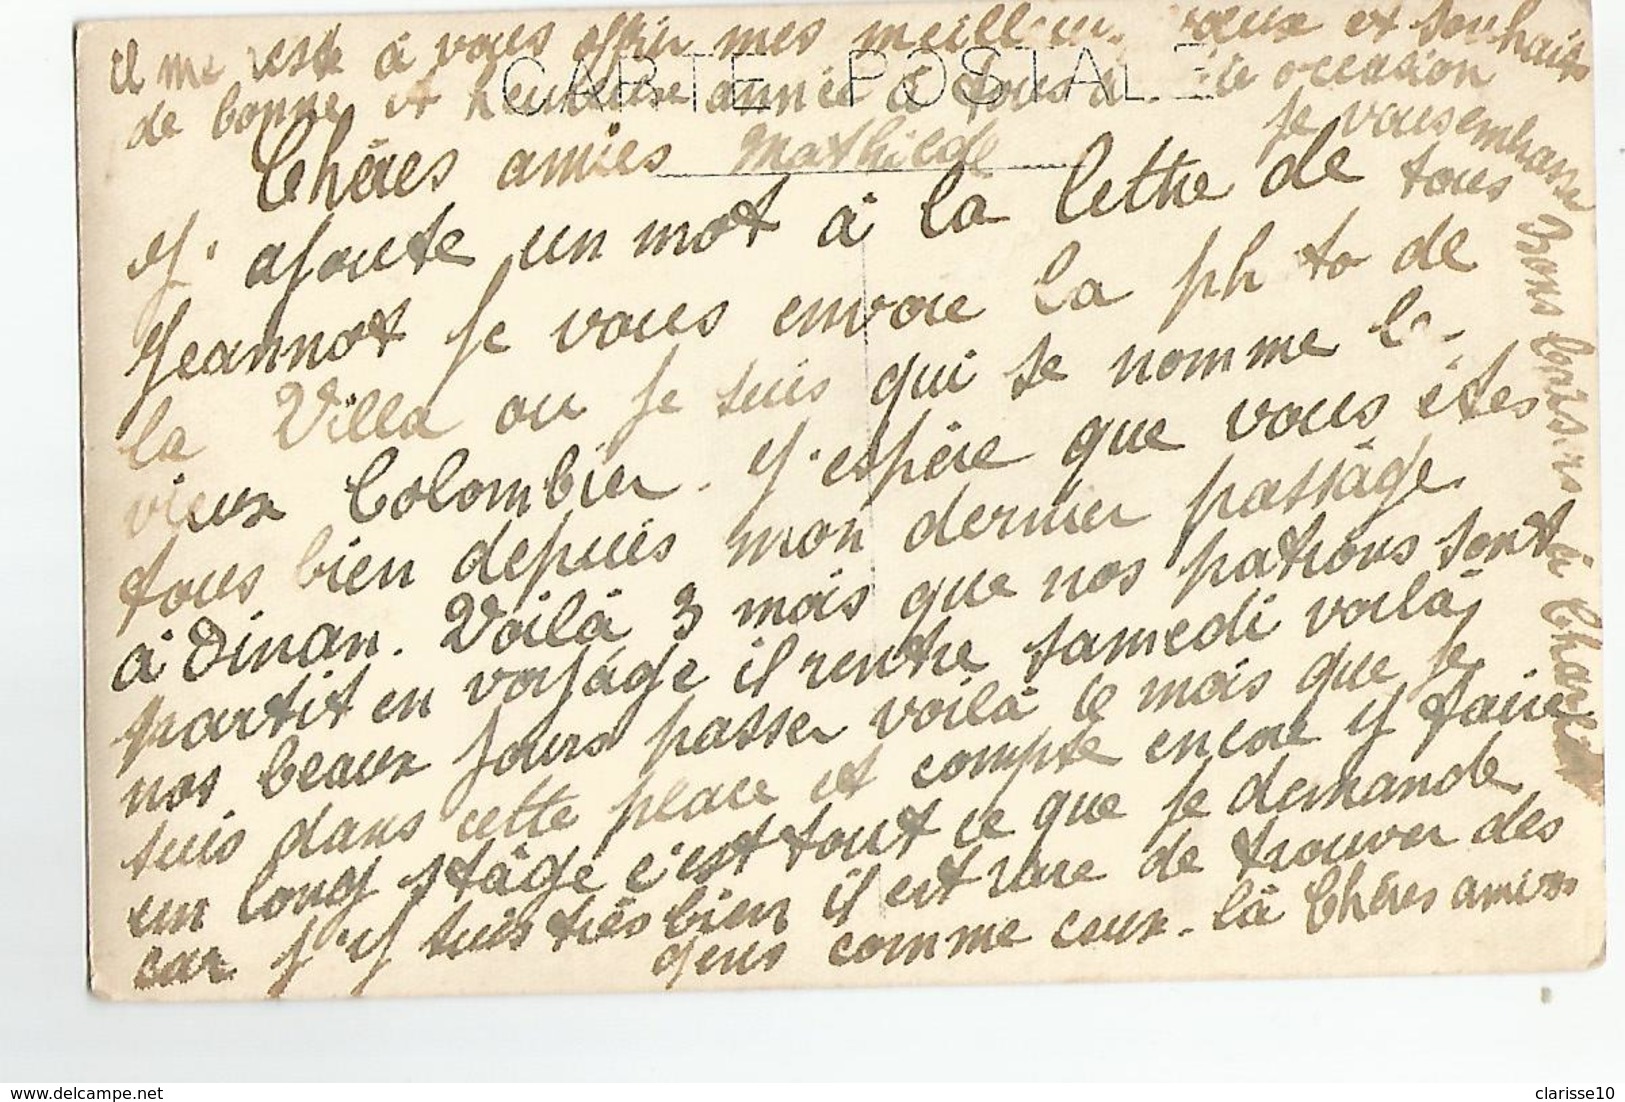 Chères amies
J'ajoute un mot à la lettre de
Jeannot je vous envoie la ph to de
la Villa ou je suis qui se nomme le
vieux Colombier. J'espère que vous êtes
tous bien depuis mon dernier passage
à Dinan. Voilà 3 mois que nos patrons sont
partit en voyage il rentre samedi voilà
nos beaux jours passer voilà le mois que je
suis dans cette place et compte encore y faire
un long stâge c'est tout ce que je demande
car j'y suis très bien il est rare de trouver des
gens comme ceux-là Chères amies
il me reste à vous offrir mes meilleurs vœux et souhaits
de bonne et heureuse année à tous occasion
je vous embrasse
tous
Mathilde
Bons baisers à
CARTE POSTALE
delcampe.net
clarisse10